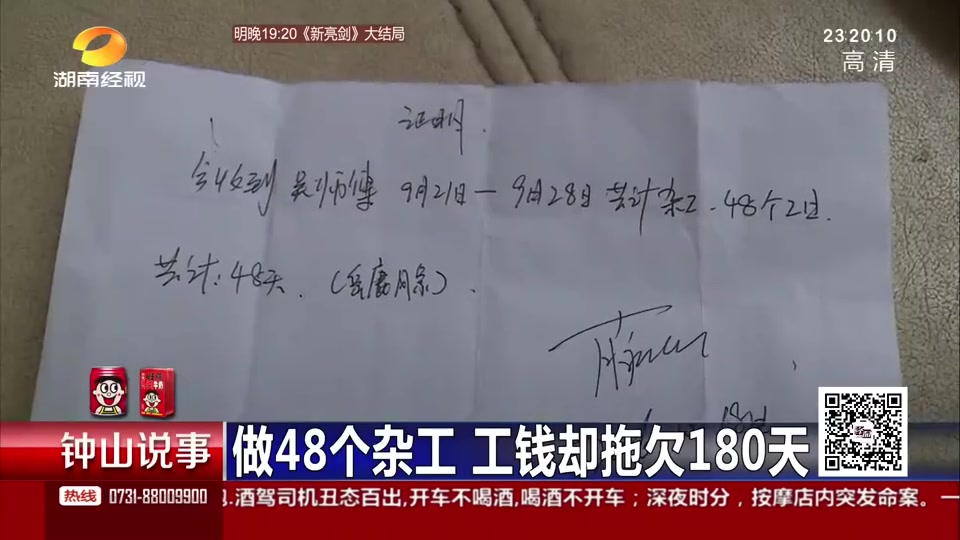 明晚19:20《新亮剑》大结局
23:20:10
高清
湖南经视
证明.
今收到 吴师傅 9月21日—9月28日 共计杂工.48个工日.
共计:48天.(岳麓府泉).
钟山说事
做48个杂工 工钱却拖欠180天
热线 0731-88009900
.酒驾司机丑态百出,开车不喝酒,喝酒不开车；深夜时分，按摩店内突发命案。一